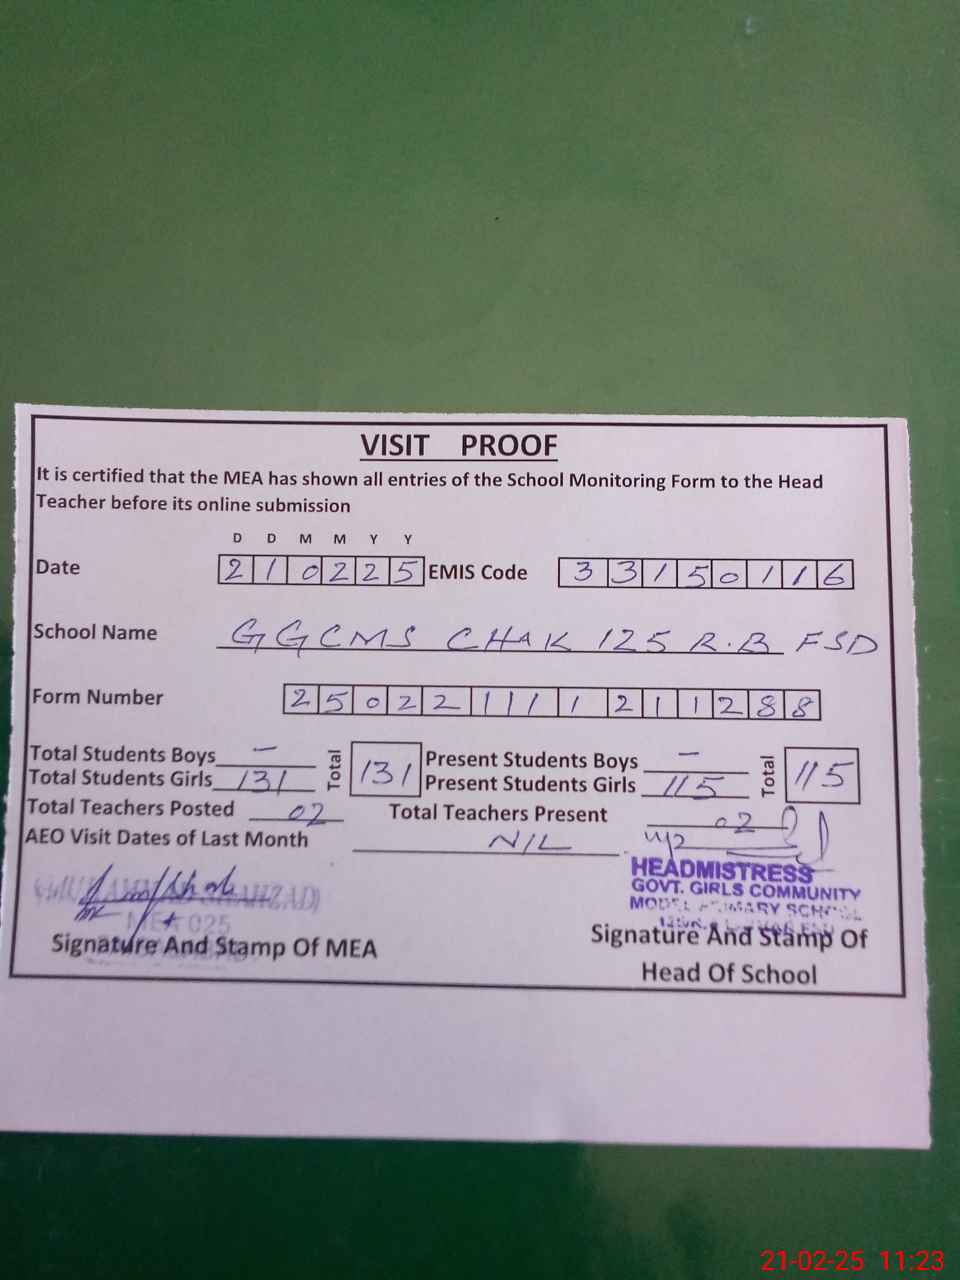 VISIT PROOF
It is certified that the MEA has shown all entries of the School Monitoring Form to the Head
Teacher before its online submission
D D M M Y Y
Date 2 1 0 2 2 5 EMIS Code 3 3 1 5 0 1 1 6
School Name GGCMS CHAK 125 R.B FSD
Form Number 2 5 0 2 2 1 1 1 1 2 1 1 2 8 8
Total Students Boys - Total 131 Present Students Boys - Total 115
Total Students Girls 131 Present Students Girls 115
Total Teachers Posted 02 Total Teachers Present 02
AEO Visit Dates of Last Month NIL
HEADMISTRESS
GOVT. GIRLS COMMUNITY
MODEL PRIMARY SCHOOL
SHAHZAD)
MEA 025
Signature And Stamp Of MEA
Signature And Stamp Of
Head Of School
21-02-25 11:23